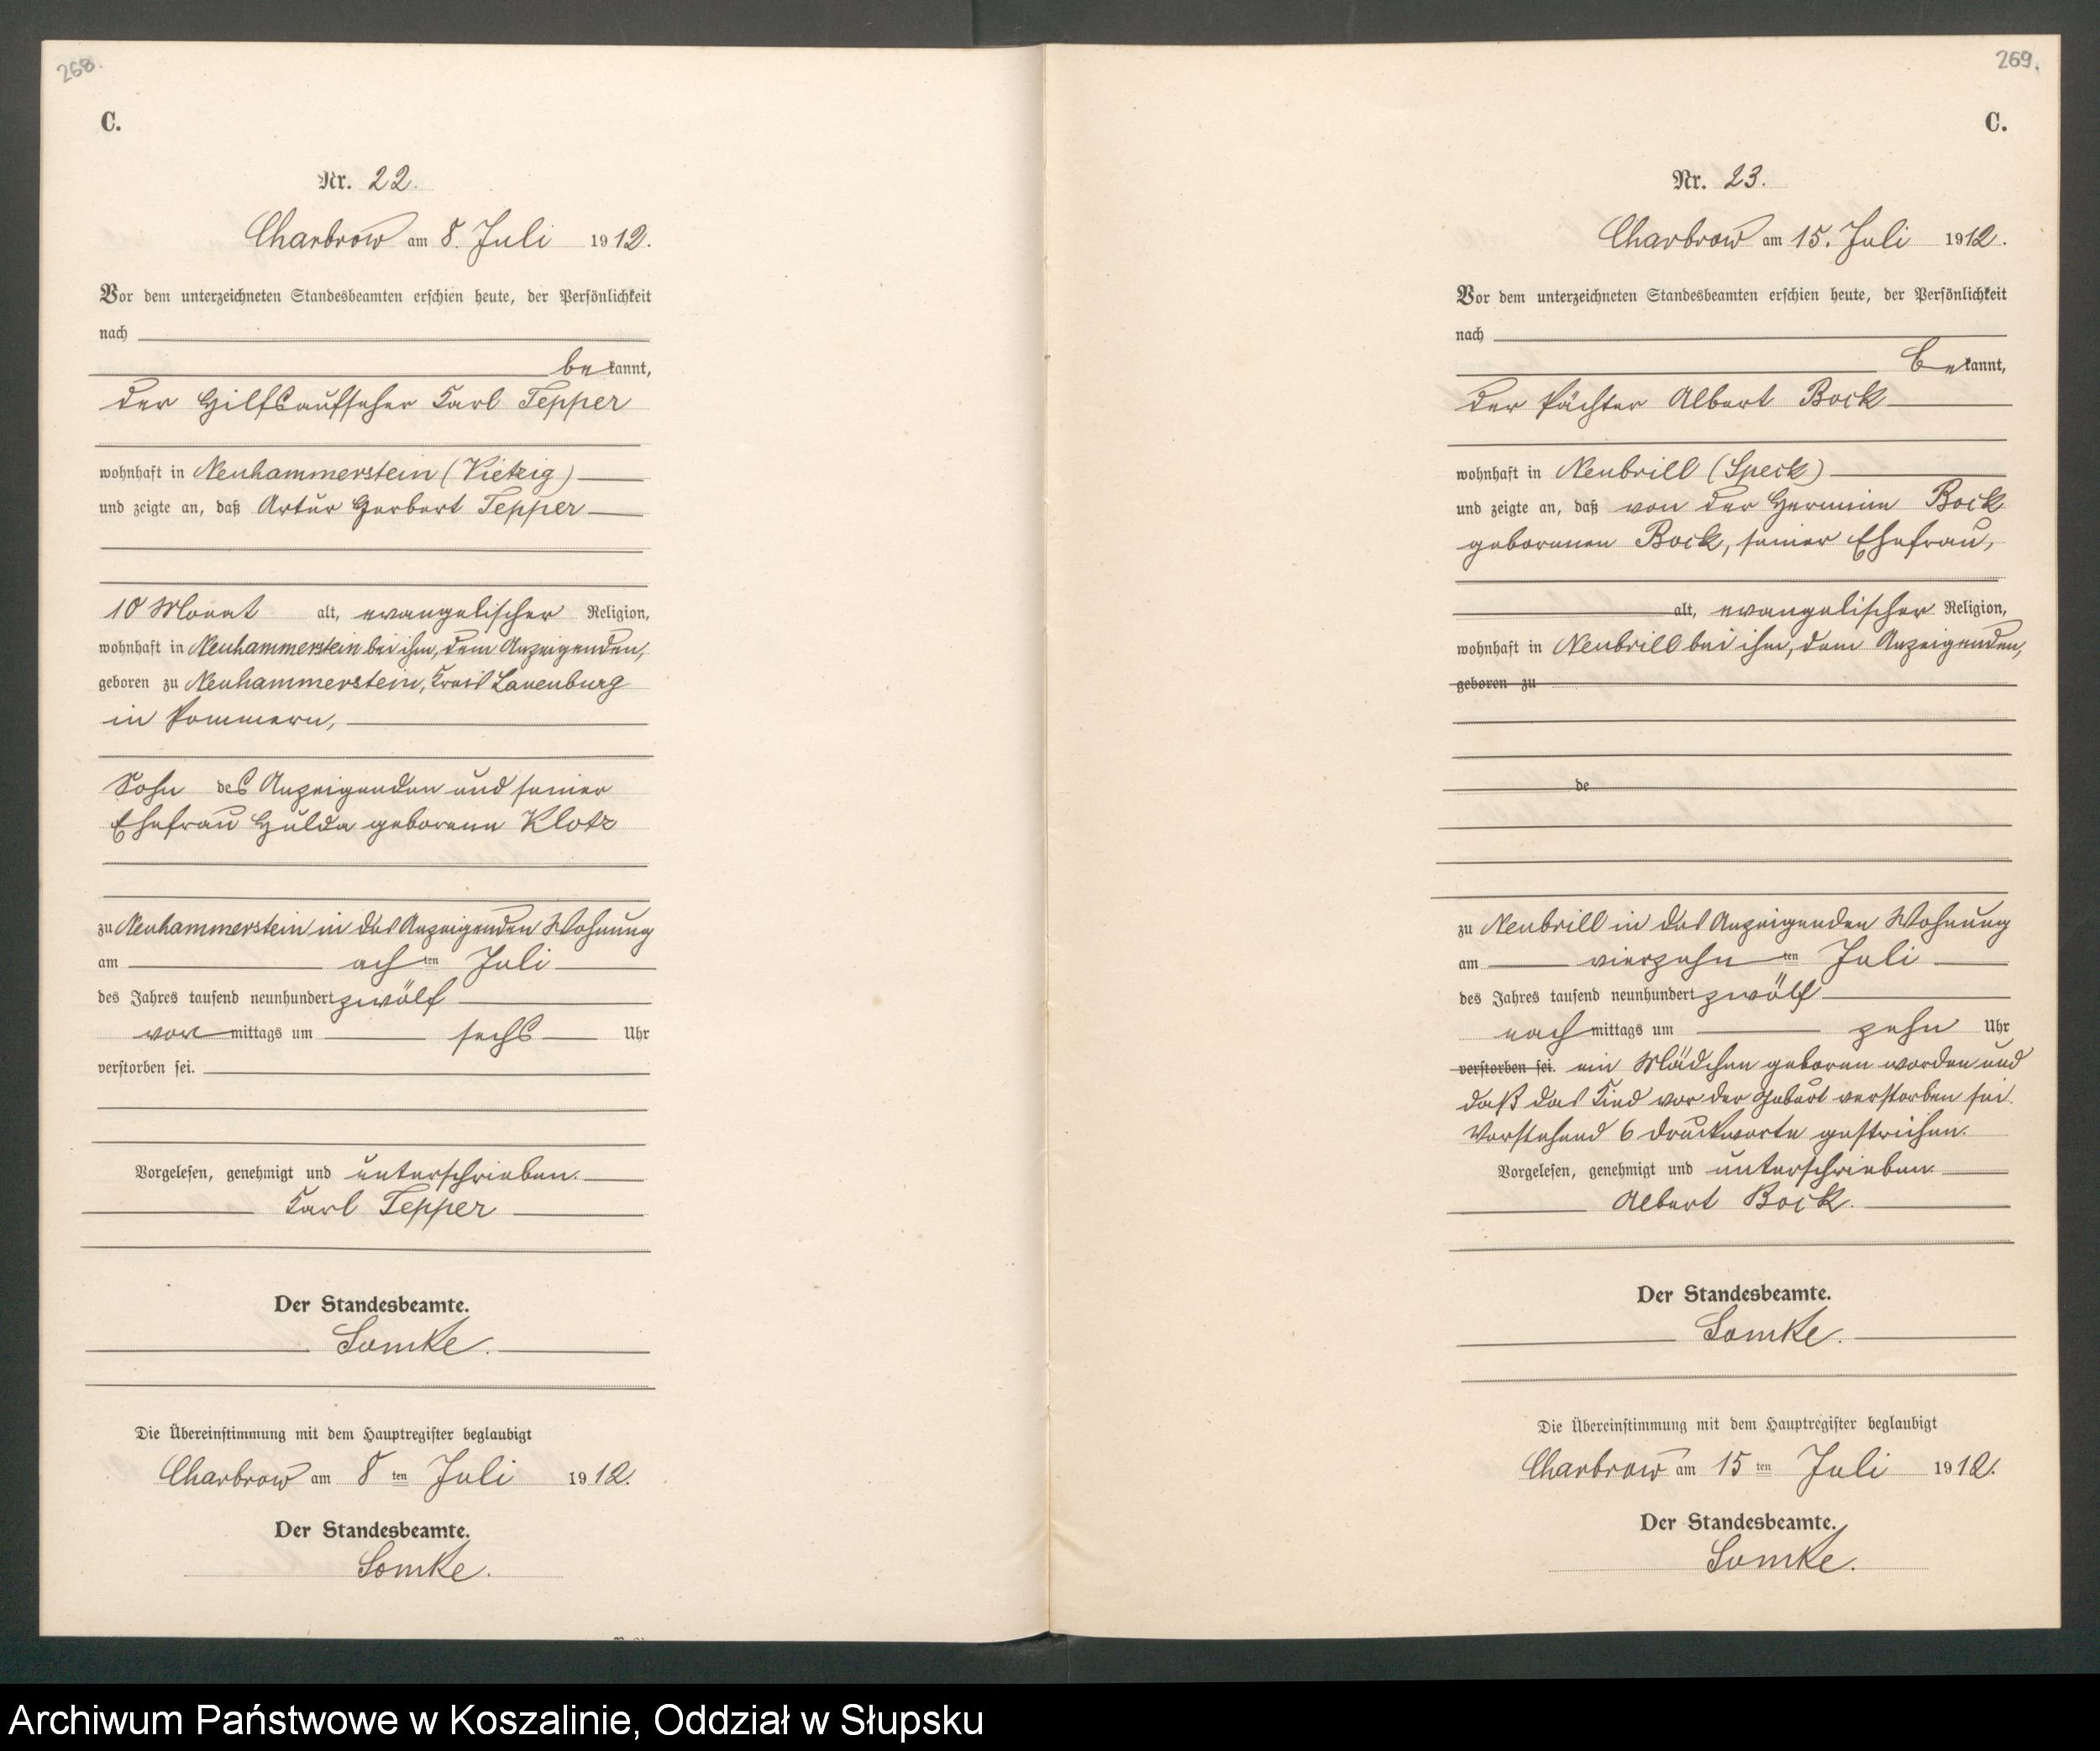 268.
C.
Nr. 22.
Charbrow am 8. Juli 1912.
Vor dem unterzeichneten Standesbeamten erschien heute, der Persönlichkeit
nach
bekannt,
der Hilfsaufseher Karl Tepper
wohnhaft in Neuhammerstein (Vietzig)
und zeigte an, daß Artur Herbert Tepper
10 Monat alt, evangelischer Religion,
wohnhaft in Neuhammerstein bei ihm, dem Anzeigenden,
geboren zu Neuhammerstein, Kreis Lauenburg
in Pommern,
Sohn des Anzeigenden und seiner
Ehefrau Hulda geborene Klotz
zu Neuhammerstein in des Anzeigenden Wohnung
am achten Juli
des Jahres tausend neunhundert zwölf
vormittags um sechs Uhr
verstorben sei.
Vorgelesen, genehmigt und unterschrieben.
Karl Tepper
Der Standesbeamte.
Lomke.
Die Übereinstimmung mit dem Hauptregister beglaubigt
Charbrow am 8ten Juli 1912.
Der Standesbeamte.
Lomke.
269.
C.
Nr. 23.
Charbrow am 15. Juli 1912.
Vor dem unterzeichneten Standesbeamten erschien heute, der Persönlichkeit
nach
bekannt,
der Pächter Albert Bock
wohnhaft in Neubrill (Speck)
und zeigte an, daß von der Hermine Bock
geborenen Bock, seiner Ehefrau,
alt, evangelischer Religion,
wohnhaft in Neubrill bei ihm, dem Anzeigenden,
geboren zu
de
zu Neubrill in des Anzeigenden Wohnung
am vierzehnten Juli
des Jahres tausend neunhundert zwölf
nachmittags um zehn Uhr
verstorben sei. ein Mädchen geboren worden und
daß das Kind vor der Geburt verstorben sei.
Vorstehend 6 Druckworte gestrichen.
Vorgelesen, genehmigt und unterschrieben.
Albert Bock.
Der Standesbeamte.
Lomke.
Die Übereinstimmung mit dem Hauptregister beglaubigt
Charbrow am 15ten Juli 1912.
Der Standesbeamte.
Lomke.
Archiwum Państwowe w Koszalinie, Oddział w Słupsku